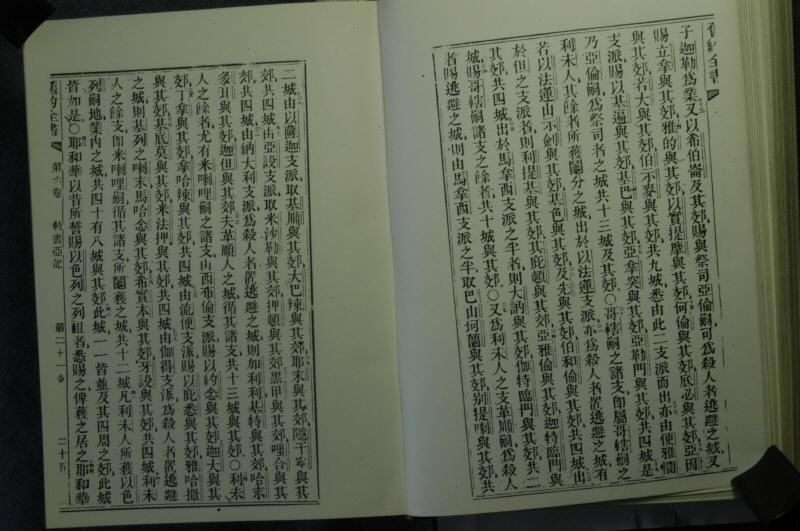 舊約全書
子迦勒爲業又以希伯崙及其郊賜與祭司亞倫嗣可爲殺人者逃避之城又
賜立拿與其郊雅的與其郊以實提摩與其郊何倫與其郊底必與其郊亞因
與其郊若大與其郊伯示麥與其郊共九城悉由此二支派而出亦由便雅憫
支派賜以基遍與其郊基巴與其郊亞拿突與其郊亞勒門與其郊共四城是
乃亞倫嗣爲祭司者之城共十三城及其郊○哥轄嗣之諸支卽屬哥轄嗣之
利未人其餘者所獲鬮分之城出於以法蓮支派亦爲殺人者置逃避之城有
若以法蓮山示劍與其郊基色與其郊及先與其郊伯和倫與其郊共四城出
於但之支派者則利提基與其郊其庇頓與其郊亞雅倫與其郊迦特臨門與
其郊共四城出於馬拿西支派之半者則大訥與其郊伽特臨門與其郊共二
城賜哥轄嗣諸支之餘者共十城與其郊○又爲利未人之支革順嗣爲殺人
者賜逃避之城則由馬拿西支派之半取巴山坷蘭與其郊别提喇與其郊共
二城由以薩迦支派取基順與其郊大巴辣與其郊耶末與其郊隱干寧與其
郊共四城由亞設支派取米沙勒與其郊押頓與其郊黑甲與其郊哩合與其
郊共四城由納大利支派爲殺人者置逃避之城則加利利基特與其郊哈末
多耳與其郊迦但與其郊夫革順人之城循其諸支共十三城與其郊○利未
人之餘者尤有米喇哩嗣之諸支由西布倫支派賜以約念與其郊迦大與其
郊丁拿與其郊拿哈辣與其郊共四城由流便支派賜以庇悉與其郊雅哈撒
與其郊基底莫與其郊米法押與其郊共四城由伽得支派爲殺人者置逃避
之城則基列之喇末馬哈念與其郊希實本與其郊牙設與其郊共四城利未
人之餘支卽米喇哩嗣循其諸支所鬮獲之城共十二城凡利未人所獲以色
列嗣地業內之城共四十有八城與其郊此城一一皆並及其四周之郊此城
皆如是○耶和華以昔所誓賜以色列之列祖者悉賜之俾獲之居之耶和華
舊約全書 第六卷 約書亞記 第二十一章 二十五